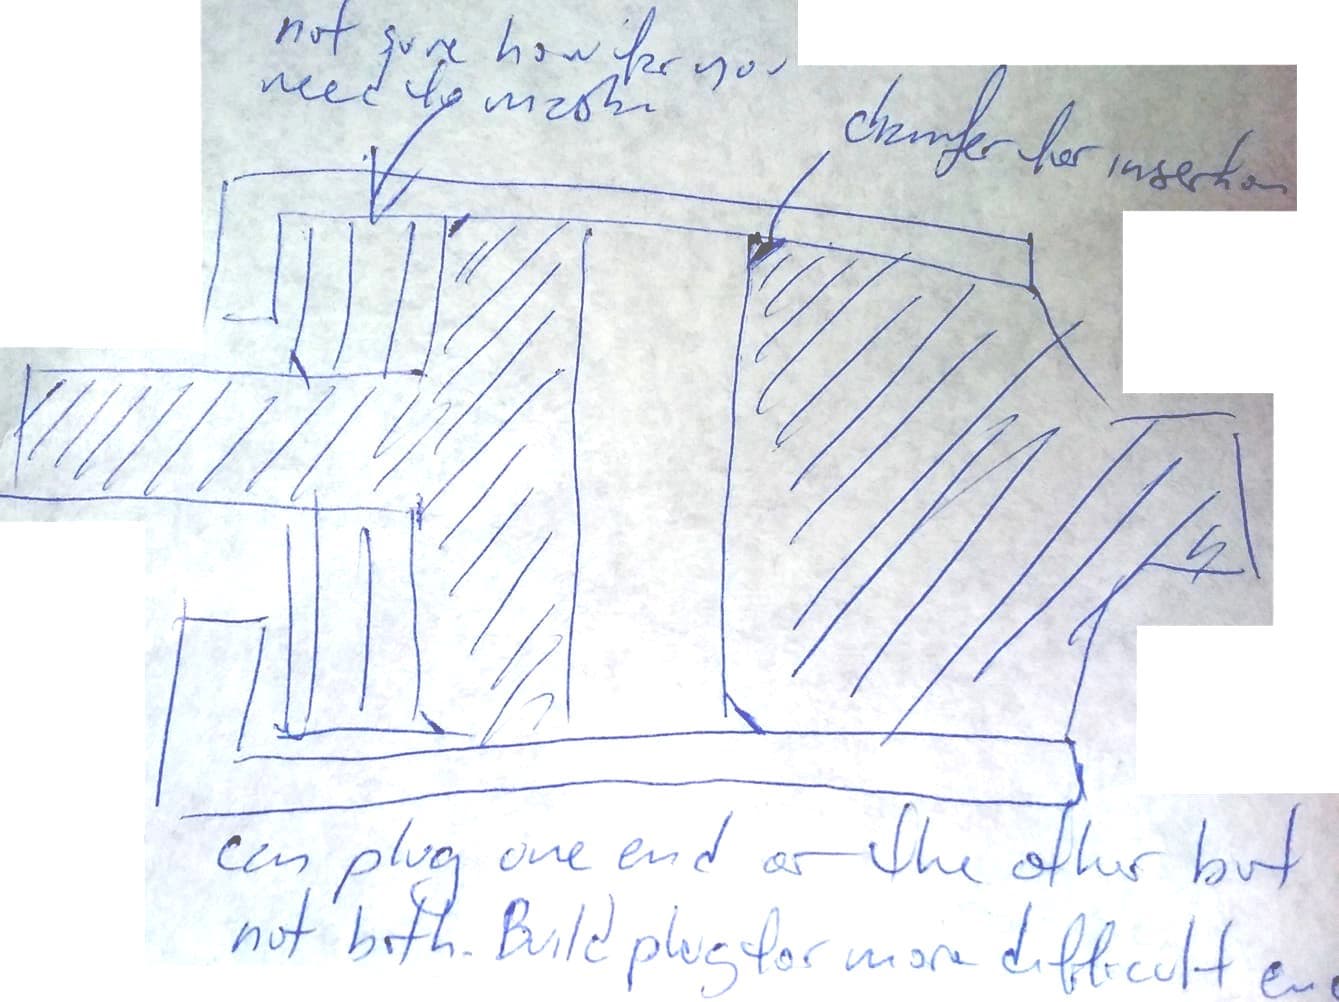 not sure how far you
need to mask
chamfer for insertion
can plug one end or the other but
not both. Build plug for more difficult end